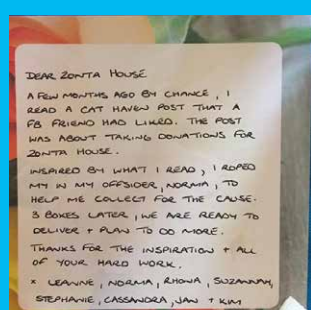 DEAR ZONTA HOUSE
A FEW MONTHS AGO BY CHANCE, I
READ A CAT HAVEN POST THAT A
FB FRIEND HAD LIKED. THE POST
WAS ABOUT TAKING DONATIONS FOR
ZONTA HOUSE.
INSPIRED BY WHAT I READ, I ROPED
MY IN MY OFFSIDER, NORMA, TO
HELP ME COLLECT FOR THE CAUSE.
3 BOXES LATER, WE ARE READY TO
DELIVER + PLAN TO DO MORE.
THANKS FOR THE INSPIRATION + ALL
OF YOUR HARD WORK.
x LEANNE, NORMA, RHONA, SUZANNAH,
STEPHANIE, CASSANDRA, JAN + KIM